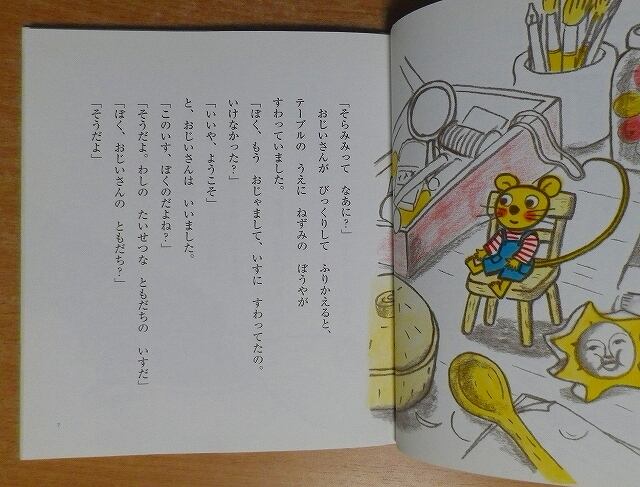 「そらみみって なあに？」
おじいさんが びっくりして ふりかえると、
テーブルの うえに ねずみの ぼうやが
すわっていました。
「ぼく、もう おじゃまして、いすに すわってたの。
いけなかった？」
「いいや、ようこそ」
と、おじいさんは いいました。
「このいす、ぼくのだよね？」
「そうだよ。わしの たいせつな ともだちの いすだ」
「ぼく、おじいさんの ともだち？」
「そうだよ」
7